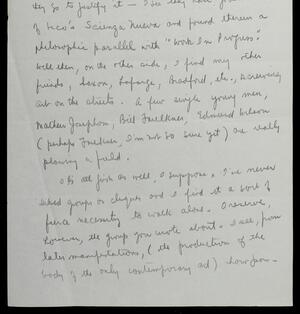 they go to justify it — I see they have
of Vico's Scienza Nueva and found therein a
philosophic parallel with "Work In Progress."
Well then, on the other side, I find my other
friends, Saxon, Lafarge, Bradford, etc.,
out on the streets. A few single young men,
Mathew Josephson, Bill Faulkner, Edmund Wilson
(perhaps Faulkner, I'm not so sure yet) are really
plowing a field.
It's all just as well, I suppose. I've never
liked groups or cliques and I find it a sort of
fierce necessity to walk alone. Observe,
however, the group you wrote about. I see, from
later manifestations, (the production of the
body of the only contemporary art)